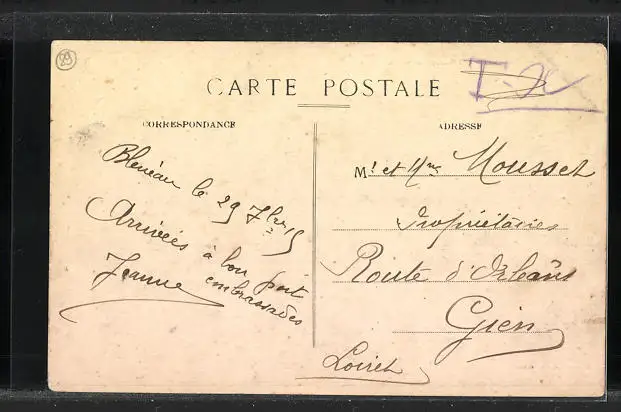 89
CARTE POSTALE
CORRESPONDANCE
ADRESSE
Bléneau le 29 7bre 15
Arrivées à bon port
embrassades
Jeanne
Mr et Mme Mousset
Propriétaires
Route d'Orléans
Gien
Loiret